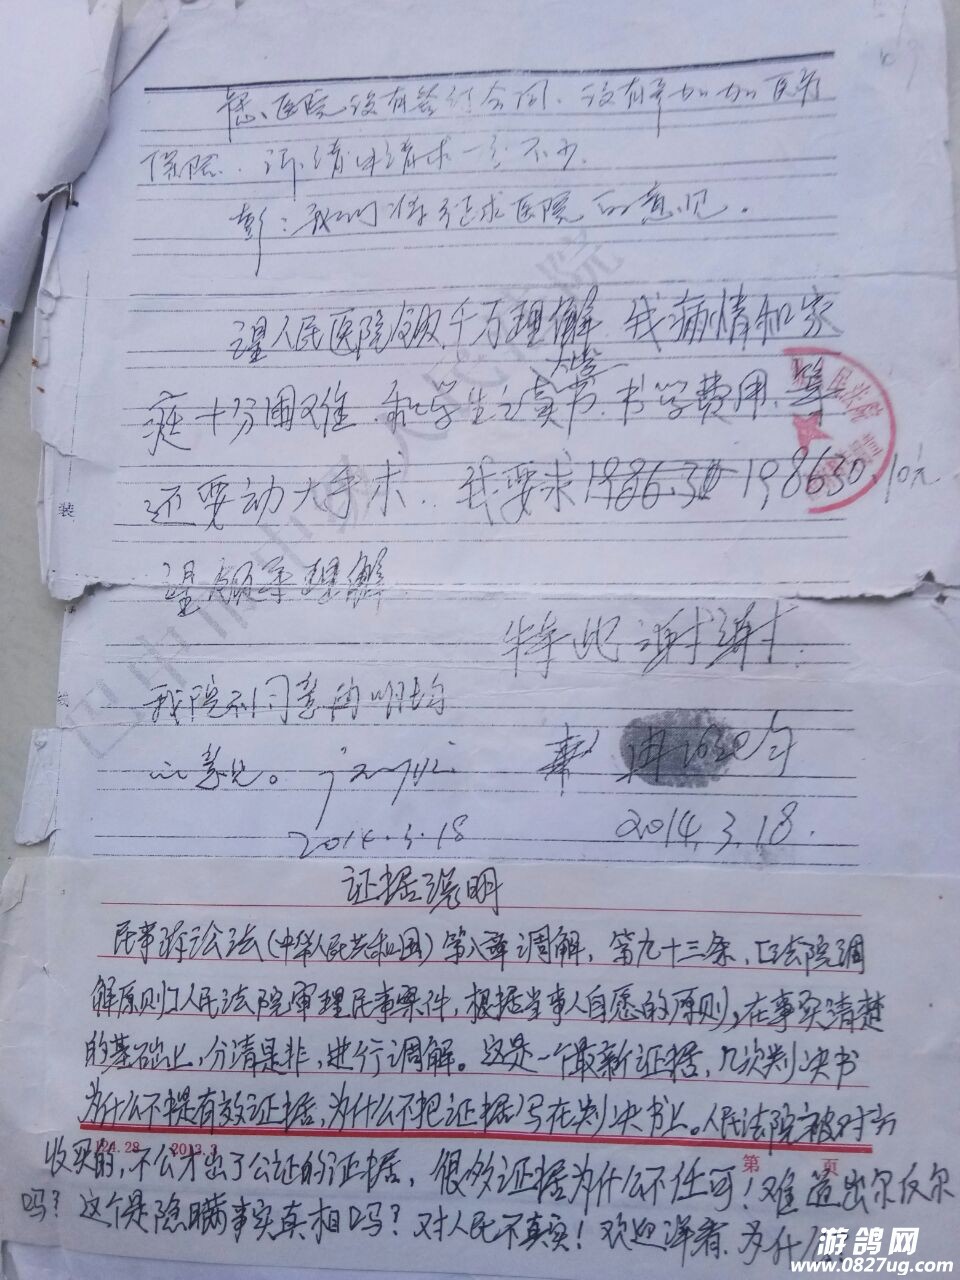 医院没有签订合同、没有
保险.
彭:我们将征求医院的意见。
望人民医院 千万理解.我病情和家
庭十分困难.和学生之大学读书.书学费用.等
还要动大手术.我要求198630.10元
望领导理解
特此谢谢.
我院不同意
的意见。
2014.3.18
2014.3.18.
证据说明
民事诉讼法(中华人民共和国)第八章调解,第九十三条,[法院调
解原则]人民法院审理民事案件,根据当事人自愿的原则,在事实清楚
的基础上,分清是非,进行调解。这是一个最新证据,几次判决书
为什么不提有效证据,为什么不把证据写在判决书上。人民法院被对方
24.28 2013.3
第 页
收买的,不公才出了公证的证据,很多证据为什么不任可!难道出尔反尔
吗?这个是隐瞒事实真相吗?对人民不真实!欢迎详看.为什么
巴中市中级人民法院
装
游鸽网
www.0827ug.com